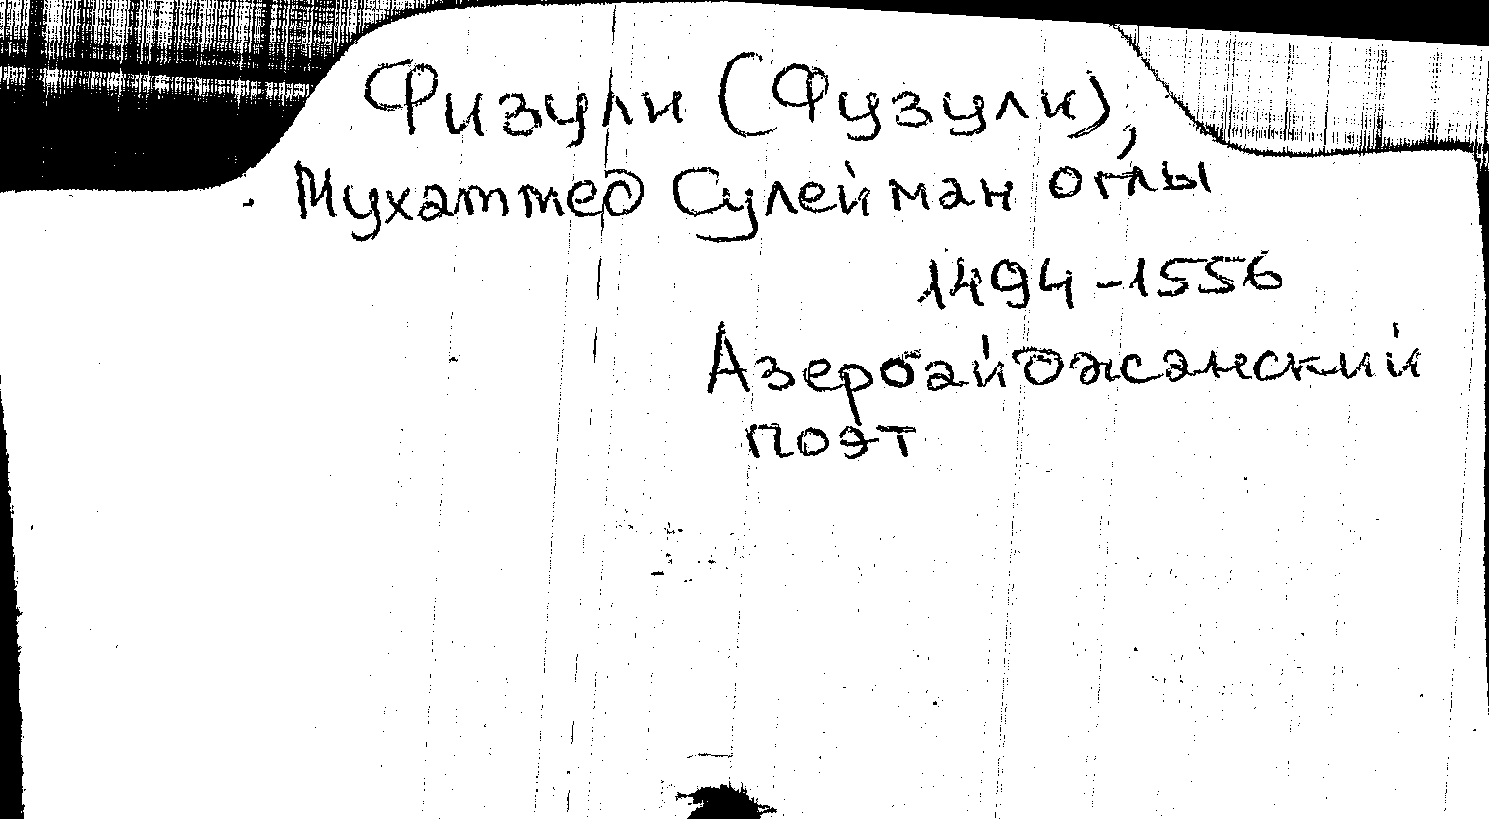 Физули (Фузули),
Мухаммед Сулейман оглы
1494-1556
Азербайджанский
поэт